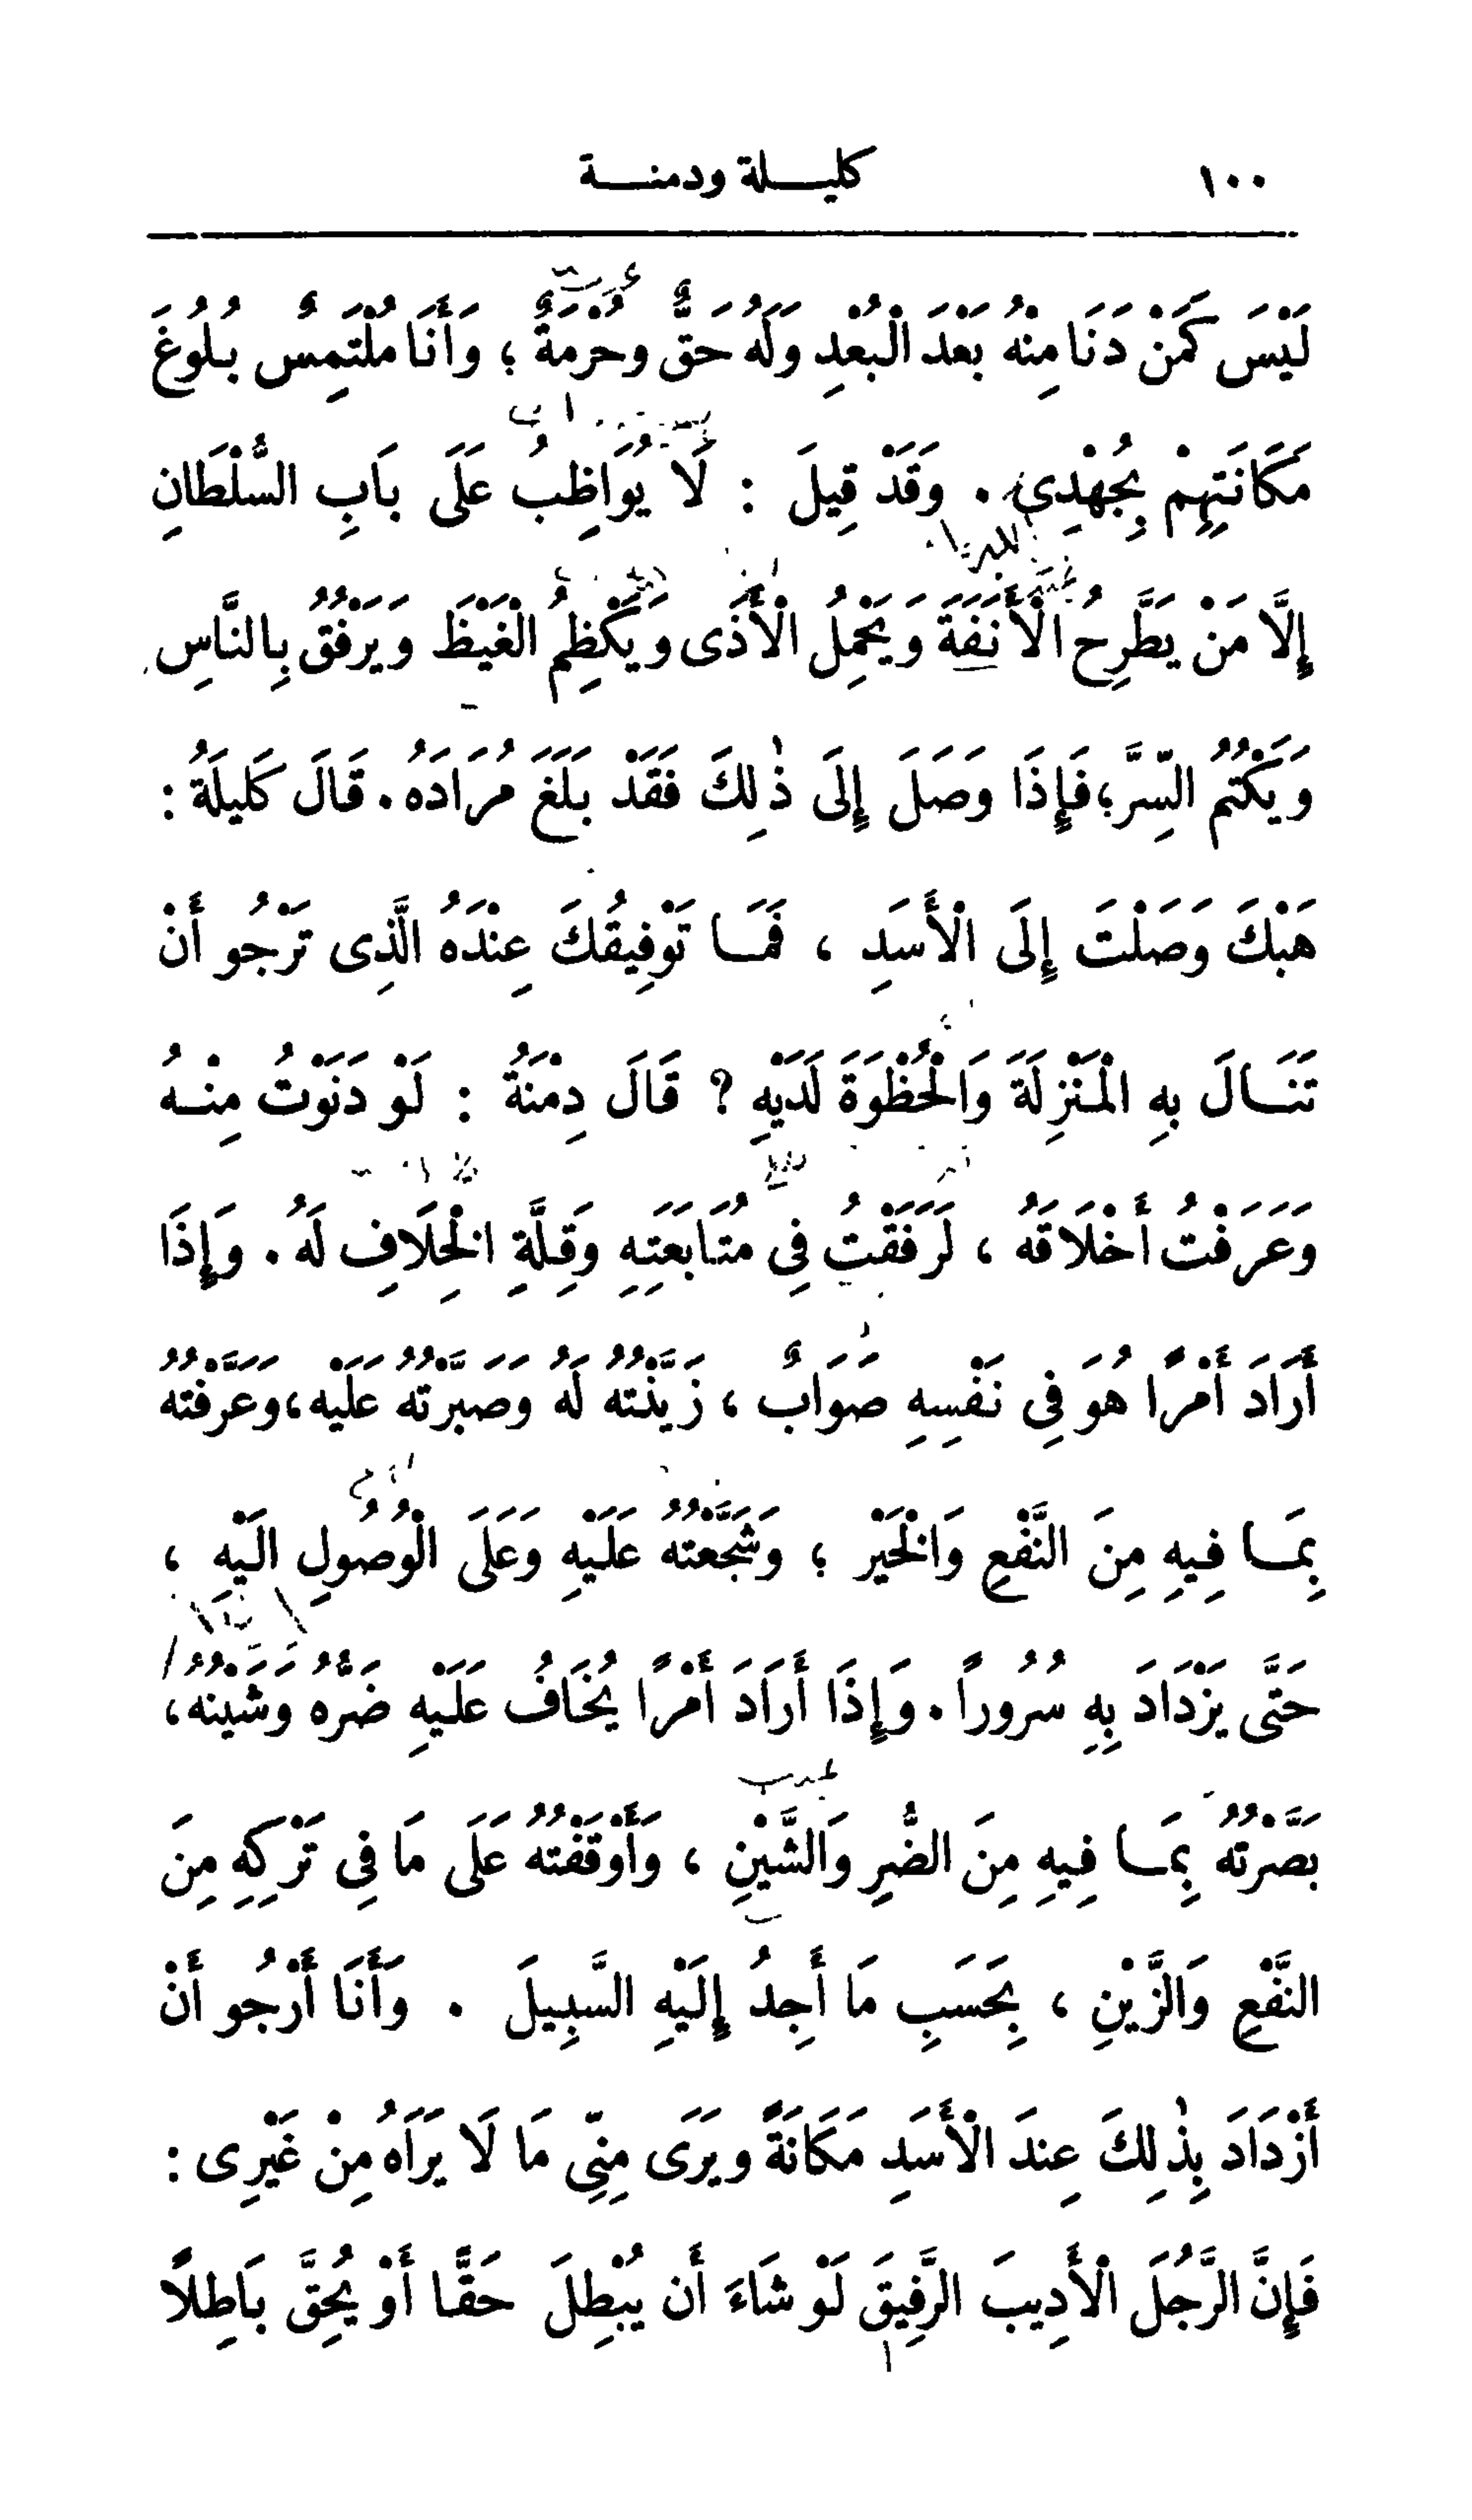 ١٠٠ كليلة ودمنة
لَيْسَ كَمَنْ دَنَا مِنْهُ بَعْدَ الْبُعْدِ وَلَهُ حَقٌّ وحُرْمَةٌ ؛ وَأَنَا مُلْتَمِسٌ بُلُوغَ
مَكَانَتِهِمْ بِجُهْدِي . وَقَدْ قِيلَ : لَا يُوَاظِبُ عَلَى بَابِ السُّلْطَانِ
إِلَّا مَنْ يَطَّرِحُ الْأَنَفَةَ وَيَحْمِلُ الْأَذَى وَيَكْظِمُ الْغَيْظَ وَيَرْفُقُ بِالنَّاسِ
وَيَكْتُمُ السِّرَّ؛ فَإِذَا وَصَلَ إِلَى ذٰلِكَ فَقَدْ بَلَغَ مُرَادَهُ. قَالَ كَلِيلَةُ :
هَبْكَ وَصَلْتَ إِلَى الْأَسَدِ ، فَمَا تَوْفِيقُكَ عِنْدَهُ الَّذِى تَرْجُو أَنْ
تَنَالَ بِهِ الْمَنْزِلَةَ وَالْحُظْوَةَ لَدَيْهِ ? قَالَ دِمْنَةُ : لَوْ دَنَوْتُ مِنْهُ
وَعَرَفْتُ أَخْلَاقَهُ ، لَرَفَقْتُ فِي مُتَابَعَتِهِ وَقِلَّةِ الْخِلَافِ لَهُ . وَإِذَا
أَرَادَ أَمْرًا هُوَ فِي نَفْسِهِ صَوَابٌ ، زَيَّنْتُهُ لَهُ وَصَبَّرْتُهُ عَلَيْه ، وَعَرَّفْتُهُ
بِمَا فِيهِ مِنَ النَّفْعِ وَالْخَيْر ؛ وَشَجَّعْتُهُ عَلَيْهِ وَعَلَى الْوُصُولِ الَيْهِ ،
حَتَّى يَزْدَادَ بِهِ سُرُوراً . وَإِذَا أَرَادَ أَمْرًا يُخَافُ عَلَيْهِ ضَرُّهُ وَشَيْنُهُ ،
بَصَّرْتُهُ بِمَا فِيهِ مِنَ الضُّرِ وَالشَّيْنِ ، وَأَوْقَفْتُهُ عَلَى مَا فِي تَرْكِهِ مِنَ
النَّفْعِ وَالزَّيْنِ ، بِحَسَبِ مَا أَجِدُ إِلَيْهِ السَّبِيلَ . وَأَنَا أَرْجُو أَنْ
أَزْدَادَ بِذٰلِكَ عِندَ الْأَسَدِ مَكَانَةً وَيَرَى مِنِّي مَا لَا يَرَاهُ مِنْ غَيْرِى :
فَإِنَّ الرَّجُلَ الْأَدِيبَ الرَّفِيقَ لَوْ شَاءَ أَن يُبْطِلَ حَقًّا أَوْ يُحِقَّ بَاطِلًا